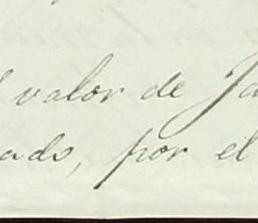 valor de
ado, por el